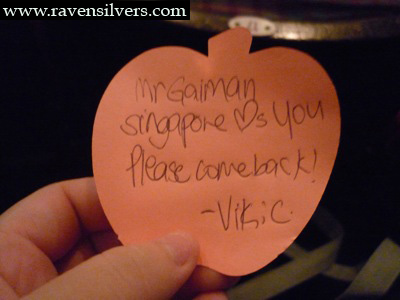 www.ravensilvers.com
Mr Gaiman
Singapore ♡s You
Please come back!
-Viki C.